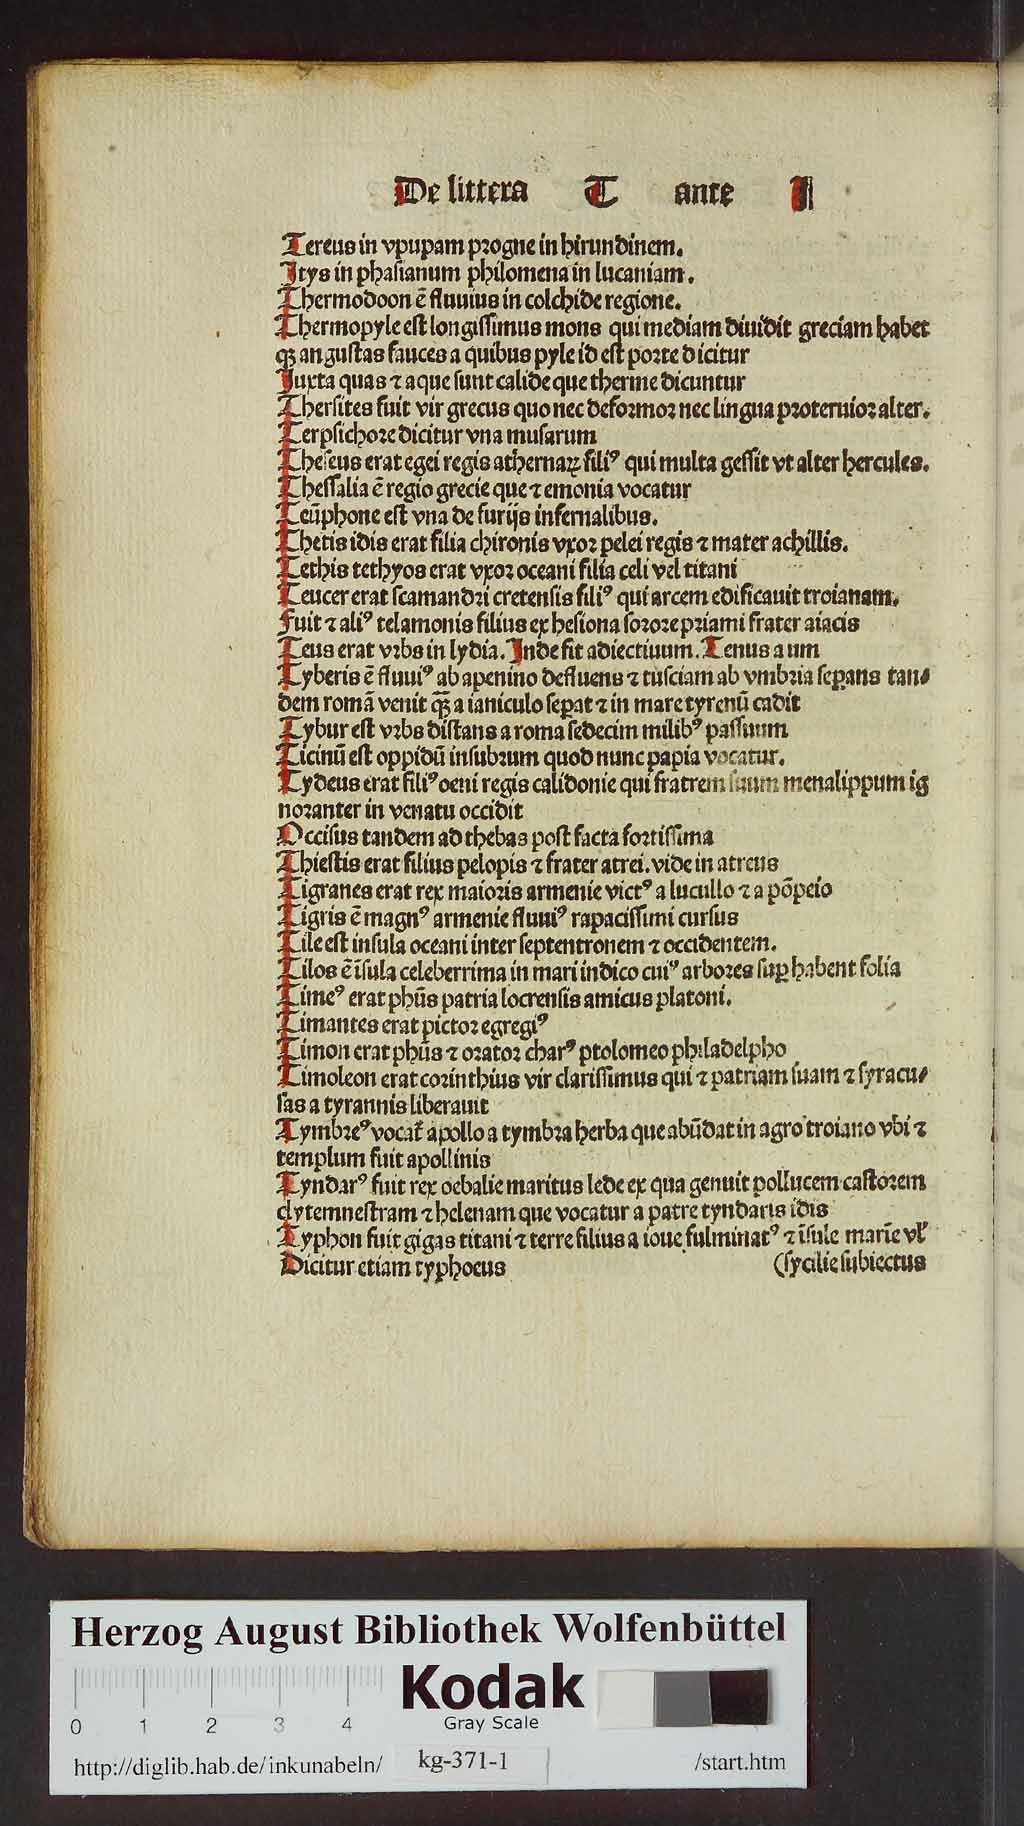 De littera T ante I
Tereus in vpupam progne in hirundinem.
Itys in phasianum philomena in lucaniam.
Thermodoon ē fluuius in colchide regione.
Thermopyle est longissimus mons qui mediam diuidit greciam habet
qꝫ angustas fauces a quibus pyle id est porte dicitur
Iuxta quas ⁊ aque sunt calide que therme dicuntur
Thersites fuit vir grecus quo nec deformor nec lingua proteruior alter.
Terpsichore dicitur vna musarum
Theseus erat egei regis athernaꝝ filiꝰ qui multa gessit vt alter hercules.
Thessalia ē regio grecie que ⁊ emonia vocatur
Teūphone est vna de furijs infernalibus.
Thetis idis erat filia chironis vxor pelei regis ⁊ mater achillis.
Tethis tethyos erat vxor oceani filia celi vel titani
Teucer erat scamandri cretensis filiꝰ qui arcem edificauit troianam.
Fuit ⁊ aliꝰ telamonis filius ex hesiona sorore priami frater aiacis
Teus erat vrbs in lydia. Inde fit adiectiuum. Tenus a um
Tyberis ē fluuiꝰ ab apenino defluens ⁊ tusciam ab vmbria seꝑans tan⸗
dem romā venit qꝫ̄ a ianiculo seꝑat ⁊ in mare tyrenū cadit
Tybur est vrbs distans a roma sedecim milibꝰ passuum
Ticinū est oppidū insubrum quod nunc papia vocatur.
Tydeus erat filiꝰ oeni regis calidonie qui fratrem suum menalippum ig
noranter in venatu occidit
Occisus tandem ad thebas post facta fortissima
Thiestis erat filius pelopis ⁊ frater atrei. vide in atreus
Tigranes erat rex maioris armenie victꝰ a lucullo ⁊ a pōpeio
Tigris ē magnꝰ armenie fluuiꝰ rapacissimi cursus
Tile est insula oceani inter septentronem ⁊ occidentem.
Tilos ē īsula celeberrima in mari indico cuiꝰ arbores suꝑ habent folia
Timeꝰ erat phūs patria locrensis amicus platoni.
Timantes erat pictor egregiꝰ
Timon erat phūs ⁊ orator charꝰ ptolomeo philadelpho
Timoleon erat corinthius vir clarissimus qui ⁊ patriam suam ⁊ syracu⸗
sas a tyrannis liberauit
Tymbreꝰ vocat̄ apollo a tymbra herba que abūdat in agro troiano vbi ⁊
templum fuit apollinis
Tyndarꝰ fuit rex oebalie maritus lede ex qua genuit pollucem castorem
clytemnestram ⁊ helenam que vocatur a patre tyndaris idis
Typhon fuit gigas titani ⁊ terre filius a ioue fulminatꝰ ⁊ īsule marīe vl̄
Dicitur etiam typhoeus (sycilie subiectus
Herzog August Bibliothek Wolfenbüttel
Kodak
Gray Scale
0 1 2 3 4
http://diglib.hab.de/inkunabeln/ kg-371-1 /start.htm